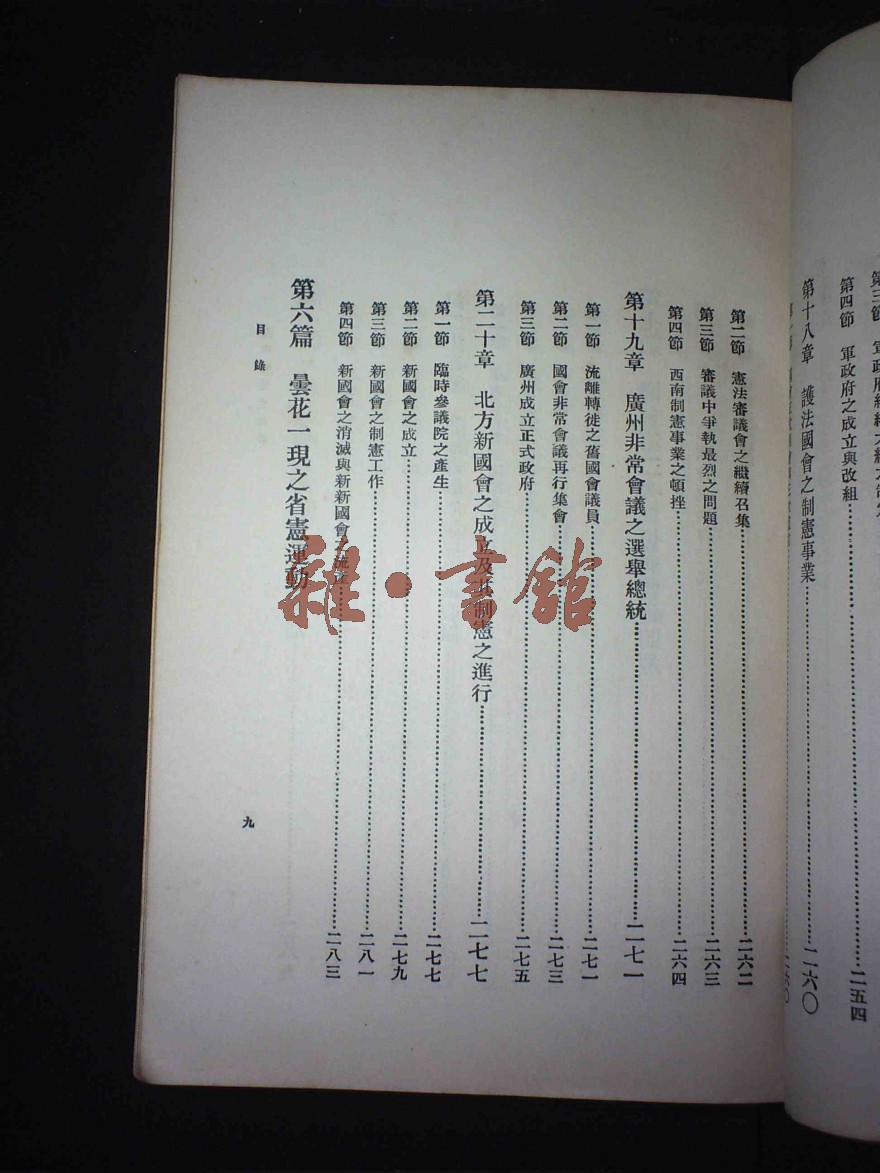 第四節　軍政府之成立與改組……二五四
第十八章　護法國會之制憲事業……二六〇
第二節　憲法審議會之繼續召集……二六二
第三節　審議中爭執最烈之問題……二六三
第四節　西南制憲事業之頓挫……二六四
第十九章　廣州非常會議之選舉總統……二七一
第一節　流離轉徙之舊國會議員……二七一
第二節　國會非常會議再行集會……二七三
第三節　廣州成立正式政府……二七五
第二十章　北方新國會之成立及其制憲之進行……二七七
第一節　臨時參議院之產生……二七七
第二節　新國會之成立……二七九
第三節　新國會之制憲工作……二八一
第四節　新國會之消滅與新新國會之流產……二八三
第六篇　曇花一現之省憲運動
目錄
九
雜·書館